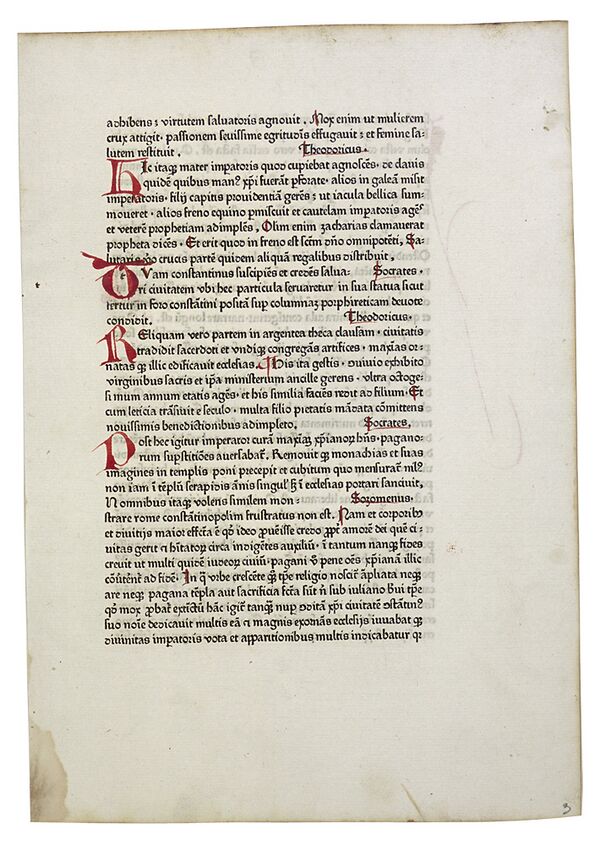 adhibens ; virtutem salvatoris agnovit . Mox enim ut mulierem
crux attigit . passionem sevissime egritudis effugavit ; et femine sa-
lutem restituit . Theodoricus .
HIc itaq; mater impatoris quod cupiebat agnoscēs . de clavis
quidē quibus man9 xp̄i fuerāt pforate . alios in galeā misit
imperatoris . filij capitis providentiā gerēs ; ut iacula bellica sum-
moveret . alios freno equino pmiscuit et cautelam impatoris agēs
et veterē prophetiam adimplēs . Olim enim zacharias clamaverat
propheta dicēs . Et erit quod in freno est sctm dn̄o omnipotēti . Sa-
lutaris v̄o crucis partē quidem aliquā regalibus distribuit .
QVam constantinus suscipiēs et credēs salva- Socrates .
ri civitatem vbi hec particula servaretur in sua statua sicut
fertur in foro constātini positā sup columnaȝ porphireticam devote
condidit . Theodoricus .
REliquam vero partem in argentea theca clausam . civitatis
tradidit sacerdoti et vndiq; congregās artifices . maxīas or-
natas q; illic edificavit ecclesias . His ita gestis . divivio exhibito
virginibus sacris et ip̄a ministerium ancille gerens . vltra octoge-
simum annum etatis agēs . et his similia faciēs rediit ad filium . Et
cum leticia trāsivit e seculo . multa filio pietatis mādata cōmittens
novissimis benedictionibus adimpleto . Socrates .
POst hec igitur imperator curā maxīaȝ xp̄ianoꝝ hn̄s . pagano-
rum supstitiōes aversabat̄ . Removit q; monachias et suas
imagines in templis poni precepit et cubitum quo mensurant̄ nil9
non iam ī tēplū serapidis amīs singul̄ s̄ ī ecclesias portari sancivit,
N omnibus itaq; volens similem mon- Sozomenus .
strare rome constātinopolim frustratus non est . Nam et corporibȝ
et divitijs maior effcta ē qd̄ ideo pvēisse credo ppt̄ amorē dei quē ci-
vitas gerit ꝛ hītatoꝝ circa indigētes auxiliū . ī tantum nanq; fides
crevit ut multi quidē iudeoꝝ civiū . pagani v̄ pene oēs xp̄ianā illic
cōvtent̄ ad fidē . In q̄ vrbe crescēte q; tp̄e religio noscit̄ āpliata neq;
are neq; pagana tēpla aut sacrificia fcta sūt n̄ sub iuliano bvi tp̄e
qd̄ mox pbat̄ extīctū hāc igit̄ tanq̄ȝ nup ꝯditā xp̄i civitatē ꝯstātin9
suo noīe dedicavit multis eā ꝛ magnis exornās ecclesijs iuvabat q;
divinitas impatoris vota et apparitionibus multis indicabatur qr
3